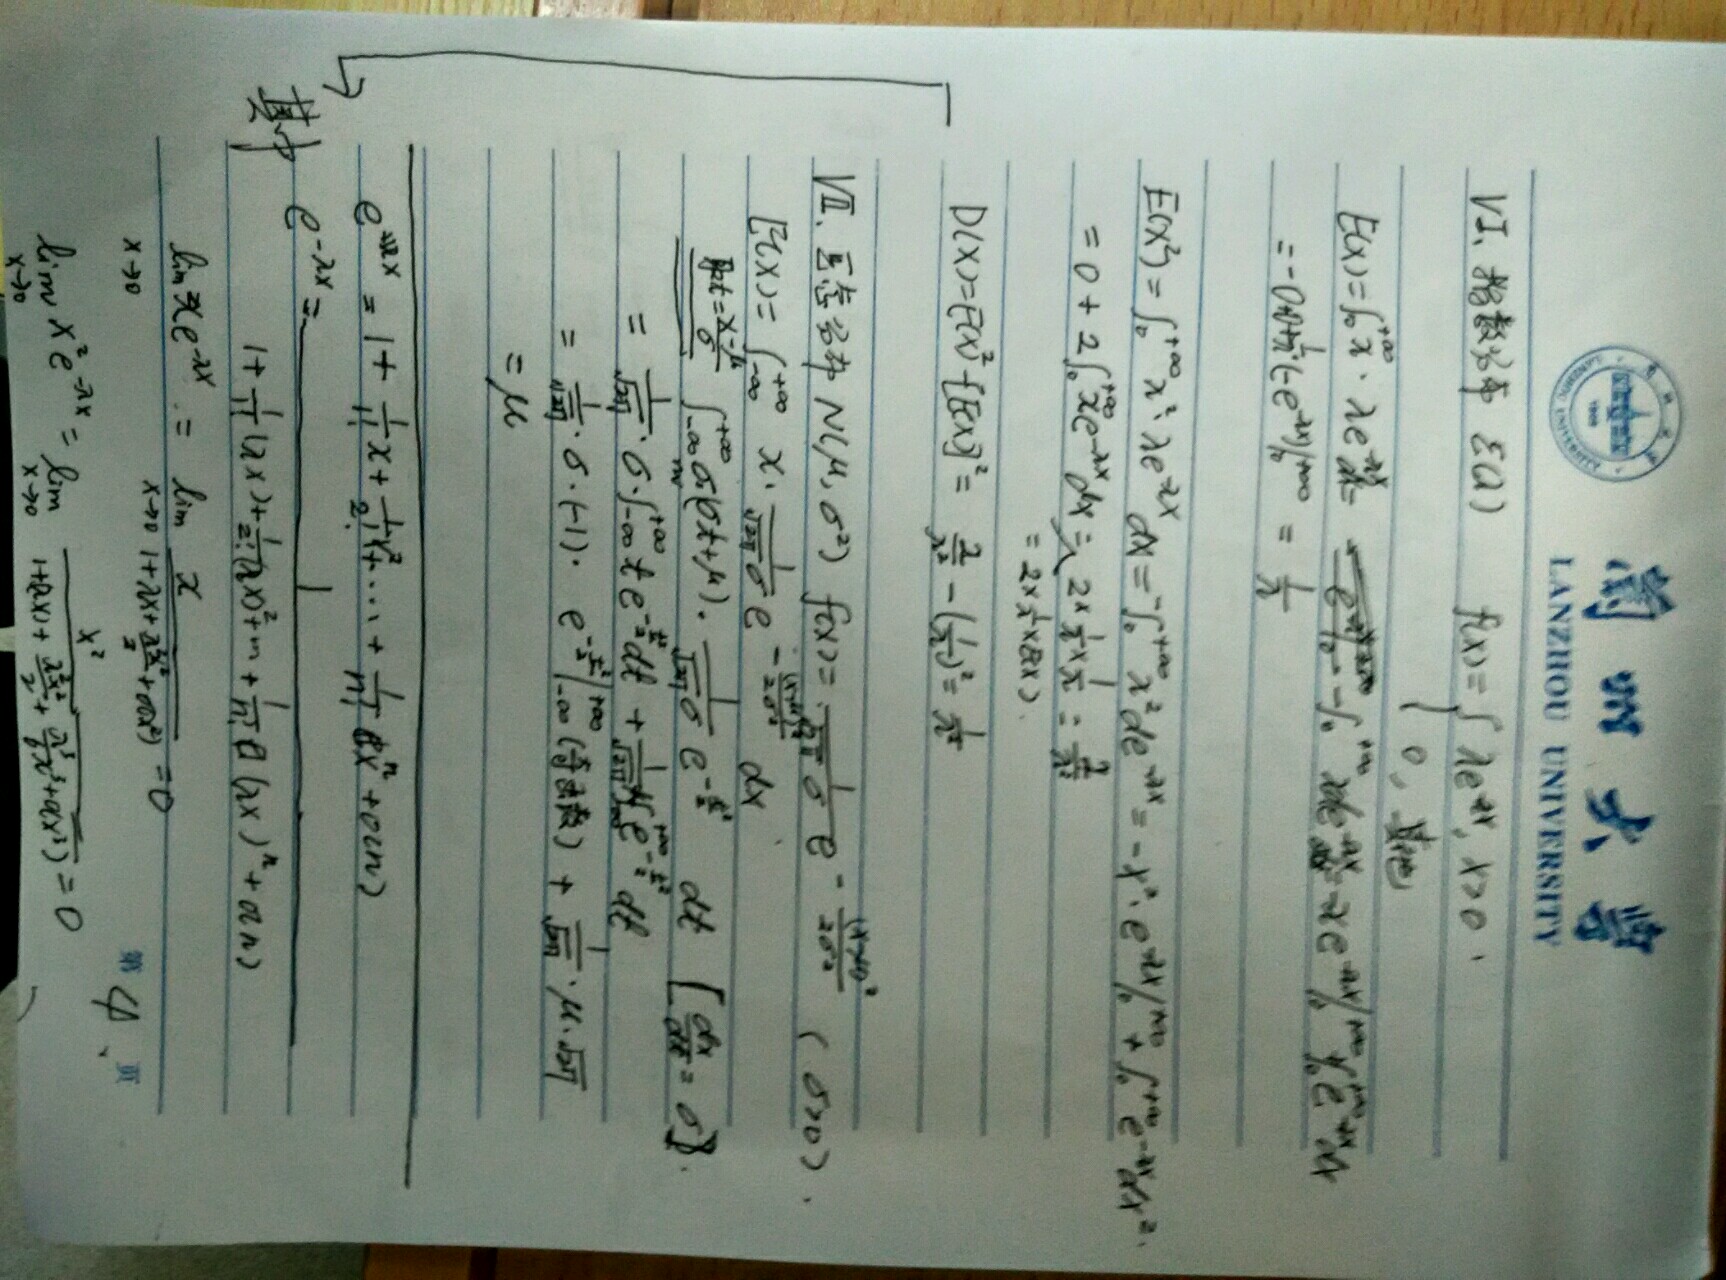 蘭州大學
LANZHOU UNIVERSITY
VI、指数分布 E(λ) f(x)={ λe^{-λx}, x>0.
0, 其他
E(x)=∫_0^{+∞} x·λe^{-λx}dx = -∫_0^{+∞} xde^{-λx} = -xe^{-λx}|_0^{+∞} + ∫_0^{+∞} e^{-λx}dx
= -0+0+\frac{1}{λ}(-e^{-λx})|_0^{+∞} = \frac{1}{λ}
E(x²)=∫_0^{+∞} x²·λe^{-λx}dx = -∫_0^{+∞} x²de^{-λx} = -x²·e^{-λx}|_0^{+∞} + ∫_0^{+∞} e^{-λx}dx².
= 0+2∫_0^{+∞} xe^{-λx}dx = 2×\frac{1}{λ}×\frac{1}{λ} = \frac{2}{λ²}
= 2×\frac{1}{λ}×E(x).
D(x)=E(x)²-[E(x)]² = \frac{2}{λ²}-(\frac{1}{λ})² = \frac{1}{λ²}
VII、正态分布 N(μ,σ²) f(x)=\frac{1}{\sqrt{2π}σ}e^{-\frac{(x-μ)²}{2σ²}} (σ>0).
E(x)=∫_{-∞}^{+∞} x·\frac{1}{\sqrt{2π}σ}e^{-\frac{(x-μ)²}{2σ²}}dx
t=\frac{x-μ}{σ} ∫_{-∞}^{+∞} σ(σt+μ)·\frac{1}{\sqrt{2π}σ}e^{-\frac{t²}{2}}dt [\frac{dx}{dt}=σ].
= \frac{1}{\sqrt{2π}}·σ·∫_{-∞}^{+∞} te^{-\frac{t²}{2}}dt + \frac{1}{\sqrt{2π}}μ∫_{-∞}^{+∞} e^{-\frac{t²}{2}}dt
= \frac{1}{\sqrt{2π}}·σ·(-1)·e^{-\frac{t²}{2}}|_{-∞}^{+∞} (奇函数) + \frac{1}{\sqrt{2π}}·μ·\sqrt{2π}
= μ
e^{x} = 1+\frac{1}{1!}x+\frac{1}{2!}x²+···+\frac{1}{n!}x^n+o(n)
其中 e^{-λx} = \frac{1}{1+\frac{1}{1!}(λx)+\frac{1}{2!}(λx)²+···+\frac{1}{n!}(λx)^n+o(n)}
lim_{x→0} xe^{-λx} = lim_{x→0} \frac{x}{1+λx+\frac{λ²x²}{2}+o(x²)} = 0
lim_{x→0} x²e^{-λx} = lim_{x→0} \frac{x²}{1+(λx)+\frac{λ²x²}{2}+\frac{λ³}{6}x³+o(x³)} = 0
第 4 页